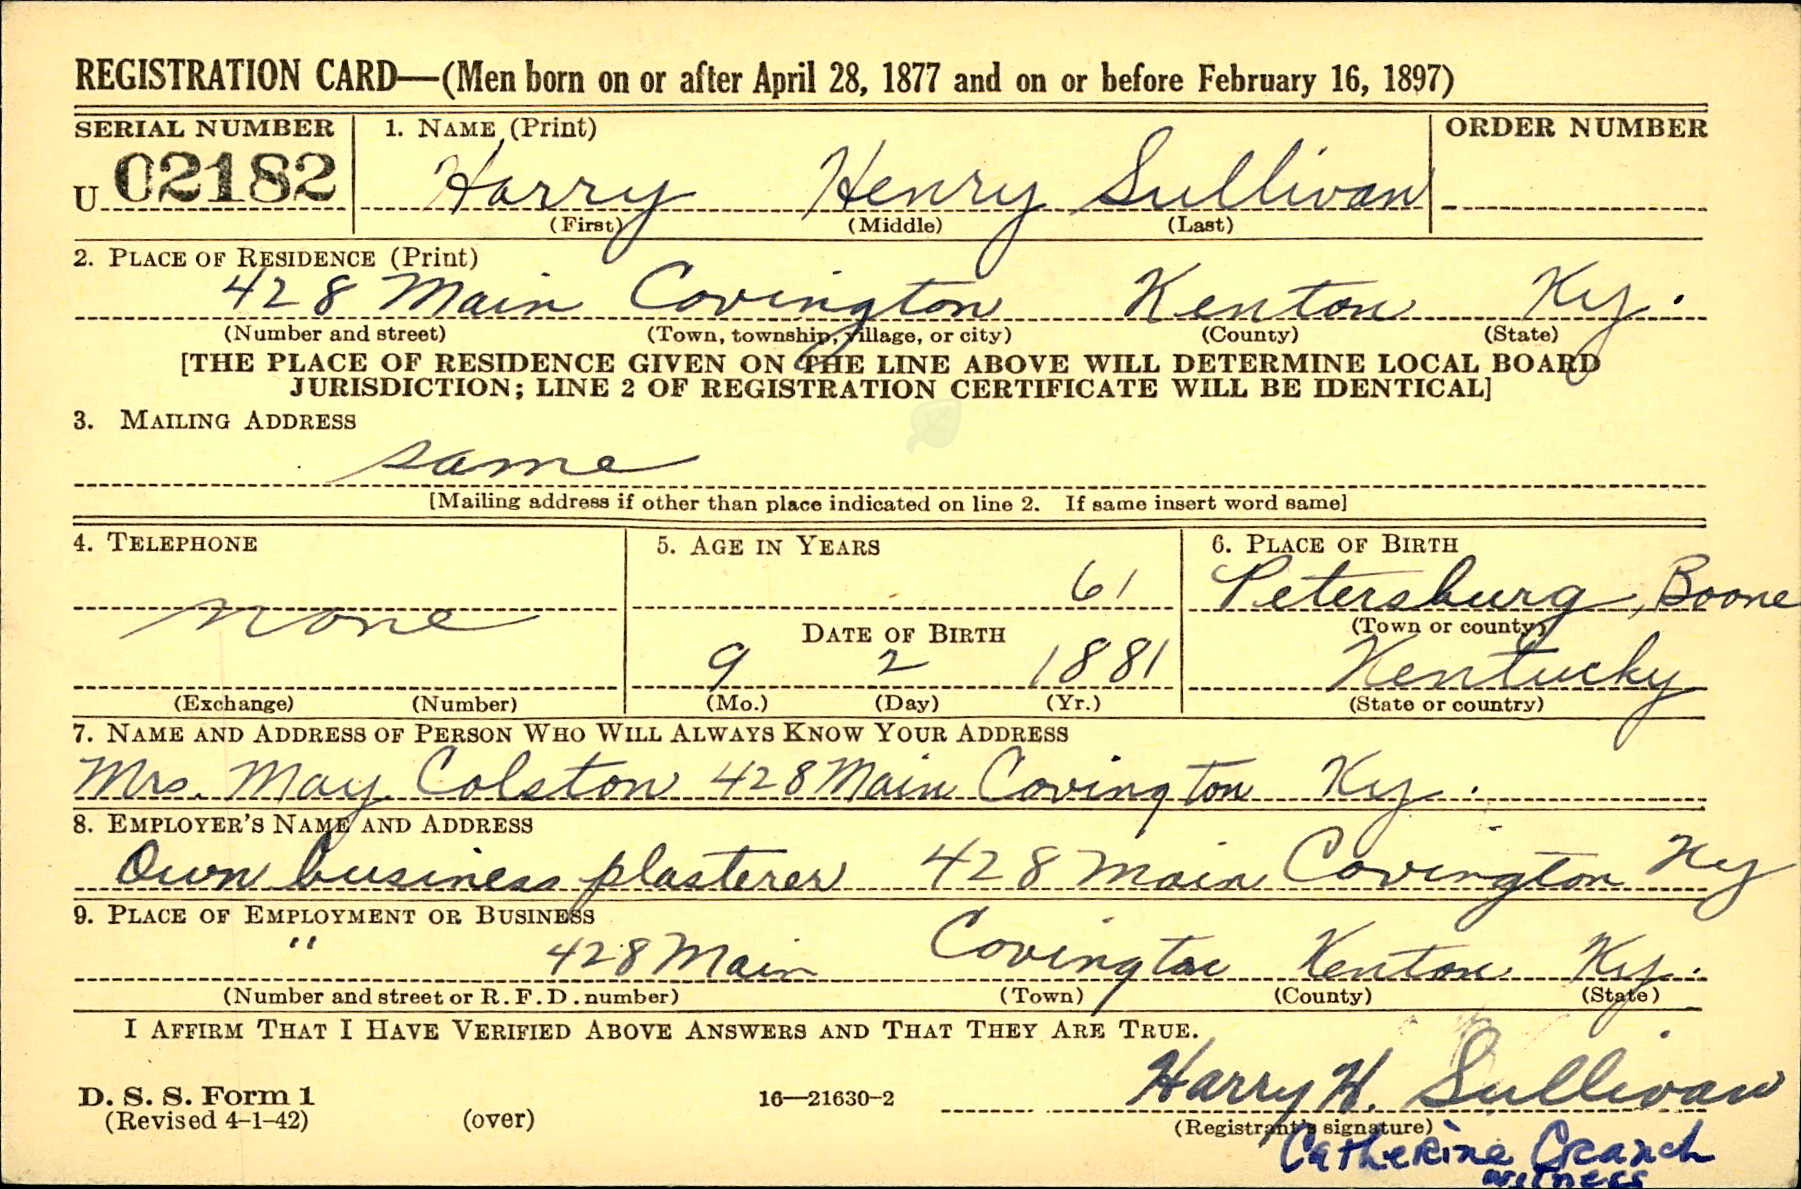 REGISTRATION CARD—(Men born on or after April 28, 1877 and on or before February 16, 1897)
SERIAL NUMBER 1. NAME (Print) ORDER NUMBER
U 02182 Harry Henry Sullivan
(First) (Middle) (Last)
2. PLACE OF RESIDENCE (Print)
428 Main Covington Kenton Ky.
(Number and street) (Town, township, village, or city) (County) (State)
[THE PLACE OF RESIDENCE GIVEN ON THE LINE ABOVE WILL DETERMINE LOCAL BOARD
JURISDICTION; LINE 2 OF REGISTRATION CERTIFICATE WILL BE IDENTICAL]
3. MAILING ADDRESS
same
[Mailing address if other than place indicated on line 2. If same insert word same]
4. TELEPHONE 5. AGE IN YEARS 6. PLACE OF BIRTH
none 61 Petersburg, Boone
DATE OF BIRTH (Town or county)
9 2 1881 Kentucky
(Exchange) (Number) (Mo.) (Day) (Yr.) (State or country)
7. NAME AND ADDRESS OF PERSON WHO WILL ALWAYS KNOW YOUR ADDRESS
Mrs. May Colston 428 Main Covington Ky.
8. EMPLOYER'S NAME AND ADDRESS
Own business plasterer 428 Main Covington Ky
9. PLACE OF EMPLOYMENT OR BUSINESS
" 428 Main Covington Kenton Ky.
(Number and street or R. F. D. number) (Town) (County) (State)
I AFFIRM THAT I HAVE VERIFIED ABOVE ANSWERS AND THAT THEY ARE TRUE.
Harry H. Sullivan
D. S. S. Form 1 16—21630-2
(Revised 4-1-42) (over) (Registrant's signature)
Catherine Cranch
witness